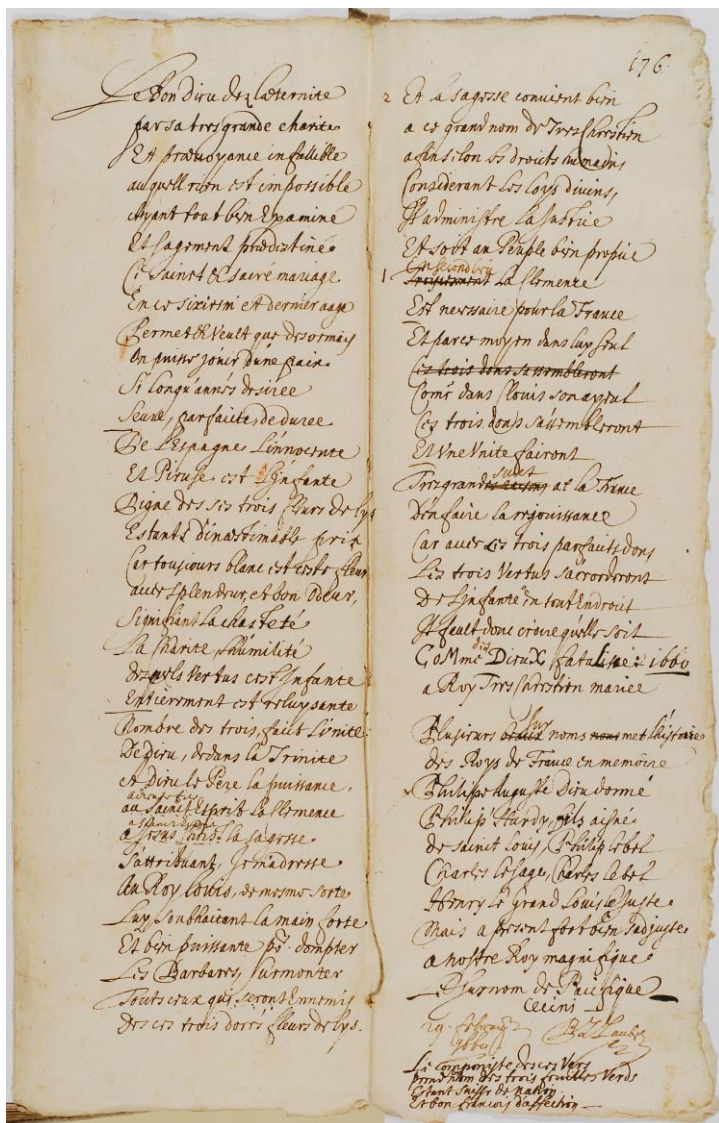 Le bon dieu dez l'æternite
par sa tres grande charite
Et prævoyance infallible
auquell rien est impossible
Ayant tout bien Examiné
Et sagement prædestiné
Ce Sainct & sacré mariage
En ce sixiesm' et dernier aage
Permet & Veult que desormais
On puisse jouir d'une paix
Si longu' années desirée
Seure, parfaicte, de duree
De L'Espagne L'innocente
Et Pieuse est L'Jnfante
Digne des ses trois fleurs de lys
Estants d'inæstimable prix
Car tousjours blanc est ceste fleur
avec splendeur, et bon Odeur,
Signifiant La chasteté
La Charité, L'humilité
desquels Vertus cest Jnfante
Entierement est reluysante
Nombre des trois, faict L'vnité
De Dieu, dedans la Trinite
A Dieu le Pere la puissance,
au Sainct Esprit La Clemence
a Jesus Christ la sagesse
S'attribuant, Je m'adresse
Au Roy Louis, de mesme sorte
Luy Soubhaitant la main forte
Et bien puissante po.r dompter
Les Barbares, Surmonter
Touts ceux qui seront Ennemis
des ces trois dorés fleurs de lys.
176
2 Et la sagesse convient bien
a ce grand nom de Tres Chrestien
afin selon les droits humains
Considerant les loys divins,
Jl administre la Justice
Et soit au Peuple bien propice
En second lieu
1 La Clemence
Est necessaire pour la France
Et par ce moyen dans luy seul
Ces trois dons sassembleront
Com̃e dans Clouis son ayeul
Ces trois dons s'assembleront
Et Vne Vnite fairont
suiet
Tres grand at la France
D'en faire la rejouissance
Car avec ces trois parfaits dons
Les trois Vertus s'accorderont
De L'jnfante en tout Endroit
Jl fault donc croire qu'elle soit
des
CoMme DieuX fataLisée: 1660
a Roy Tres Chrestien mariee
Plusieurs sur noms met l'histoire
des Roys de France en memoire
Philippe Auguste Dieu donné
Philip' Hardy, fils aisné
de sainct Louis, Philip le bel
Charles le sage, Charles le bel
Henry le Grand Louis le Juste
Mais a present fort bien s'adjuste
a nostre Roy magnifique
Le Surnom de Pacifique
Cecini
29. februa
1660
Le componiste des ces Vers
prend nom des trois feuilles Verds
Estant Suisse de nation
Et bon françois d'affection